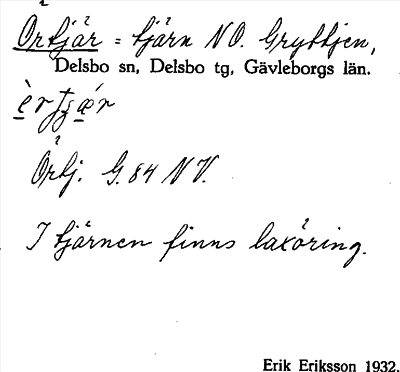 Örtjär = tjärn NO. Gryttjen,
Delsbo sn, Delsbo tg, Gävleborgs län.
Örtj. G. 84 NV.
I tjärnen finns laxöring.
Erik Eriksson 1932.